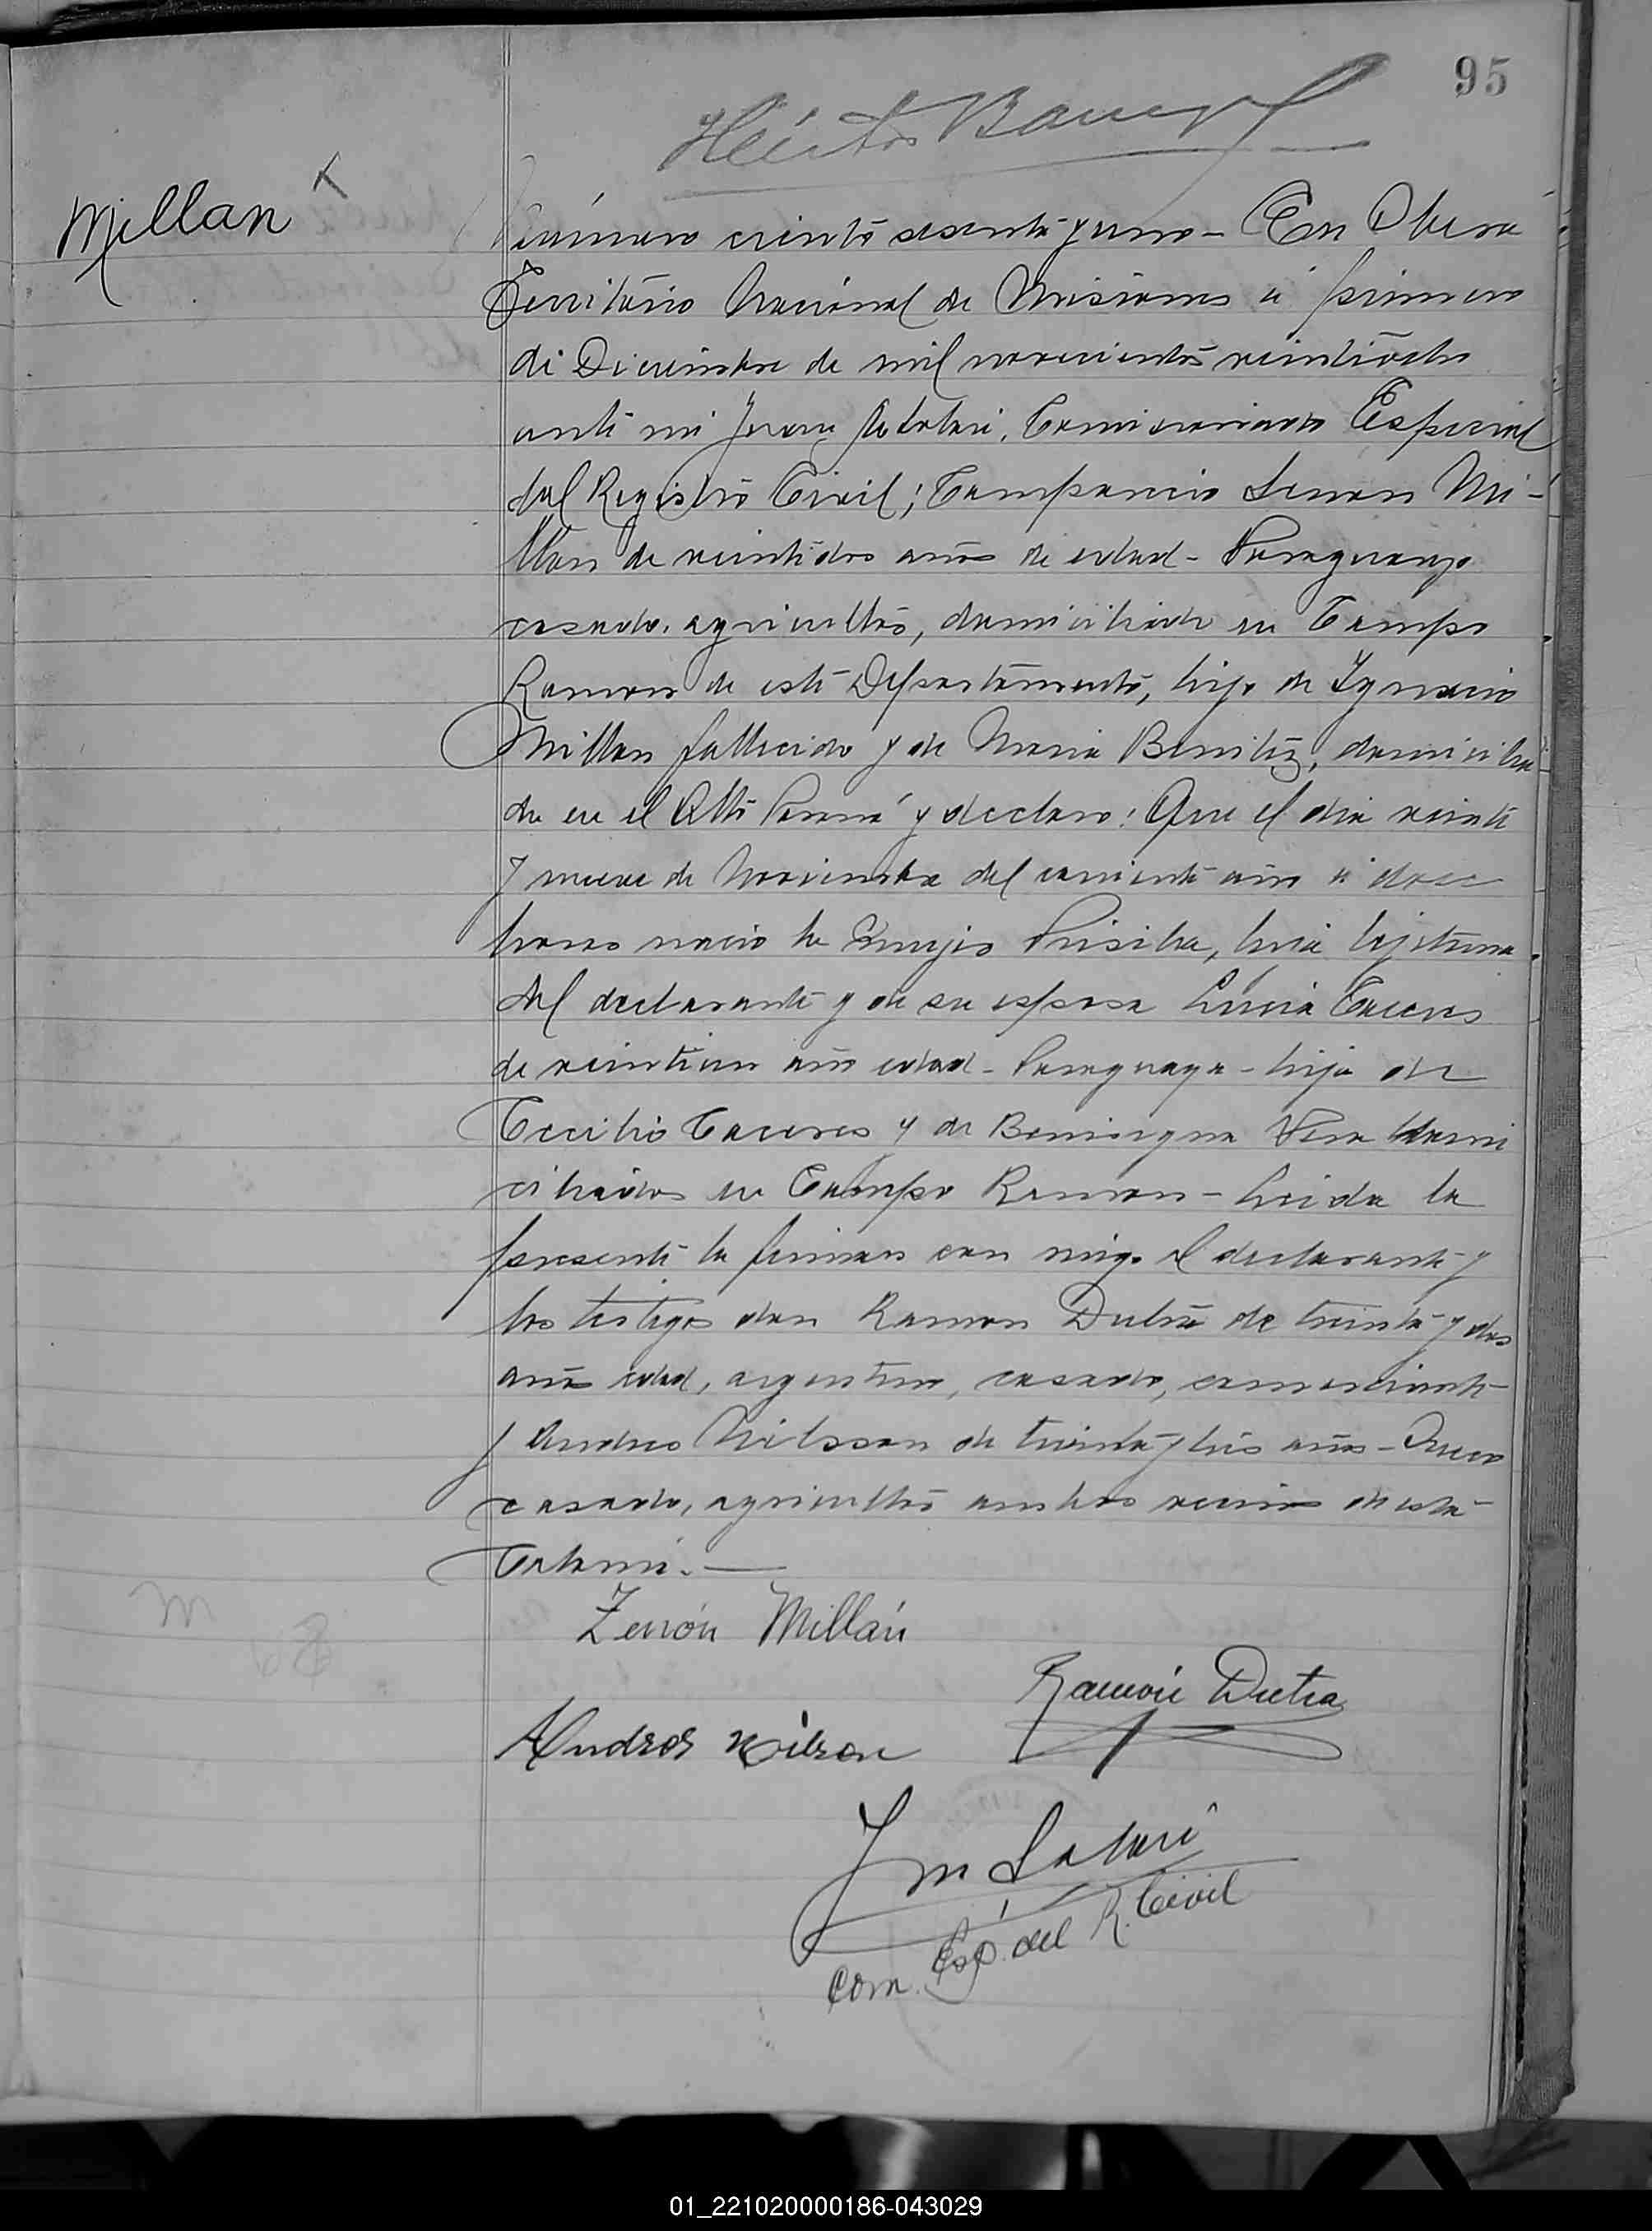 95
Héctor
Millan
Número ciento sesenta y uno - En Oberá
Territorio Nacional de Misiones á primero
de Diciembre de mil novecientos veintiocho
ante mi Juan, Comisionado Especial
del Registro Civil; Comparecio Senon Mi-
llan de veintidos años de edad - Paraguayo
casado, agricultor, domiciliado en Campo
Ramon de este Departamento, hijo de Ygnacio
Millan fallecido y de Maria Benitez, domicilia
da en el Alto Paraná y declaro: Que el dia veinti
y nueve de Noviembre del corriente año á doce
horas nacio la Prisila, hija lejitima
del declarante y de su esposa Lucia Caceres
de años edad - Paraguaya - hija de
Cecilio Caceres y de Benisigna Vera domi
ciliados en Campo Ramon - Leida la
presente la firman con migo el declarante y
los testigos don Ramon Dutra de treinta y dos
años edad, argentino, casado, comerciante
y Andres Nilsson de treinta y tres años - Sueco
casado, agricultor ambos vecinos de esta
Colonia. —
Zenón Millán
Ramón Dutra
Andres Nilson
Com. Esp. del R. Civil
01_221020000186-043029